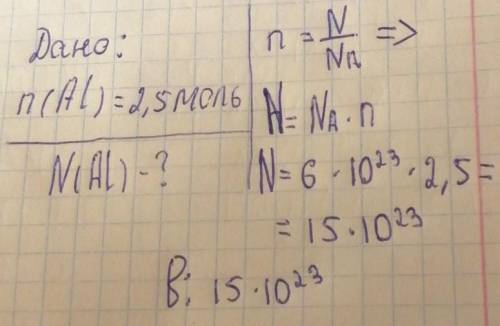 Дано:
n(Al)=2,5моль
N(Al)-?
n = N/NA =>
N = NA · n
N = 6 · 10²³ · 2,5 =
= 15 · 10²³
В: 15 · 10²³